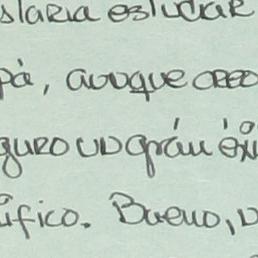 slaria estudiar
pà, auuque creo
guro un gran éxi
ífico. Bueno, v